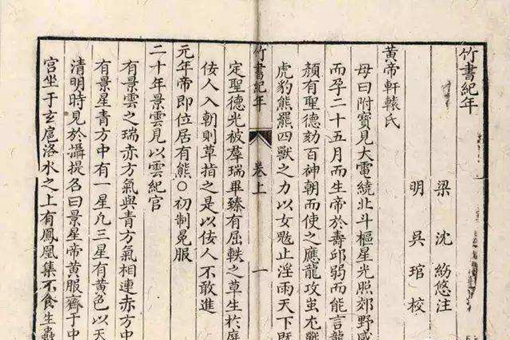 竹書紀年
梁 沈 約悠注
明 吳 琯 校
黃帝軒轅氏
母曰附寶見大電繞北斗樞星光照郊野感
而孕二十五月而生帝於壽邱弱而能言龍
顏有聖德劾百神朝而使之應龍攻蚩尤戰
虎豹熊羆四獸之力以女魃止淫雨天下既
竹書紀年 卷上 一
定聖德光被羣瑞畢臻有屈軼之草生於庭
佞人入朝則草指之是以佞人不敢進
元年帝即位居有熊○初制冕服
二十年景雲見以雲紀官
有景雲之瑞赤方氣與青方氣相連赤方中
有景星青方中有一星凡三星有黃色以天
清明時見於攝提名曰景星帝黃服齋于中
宮坐于玄扈洛水之上有鳳凰集不食生蟲